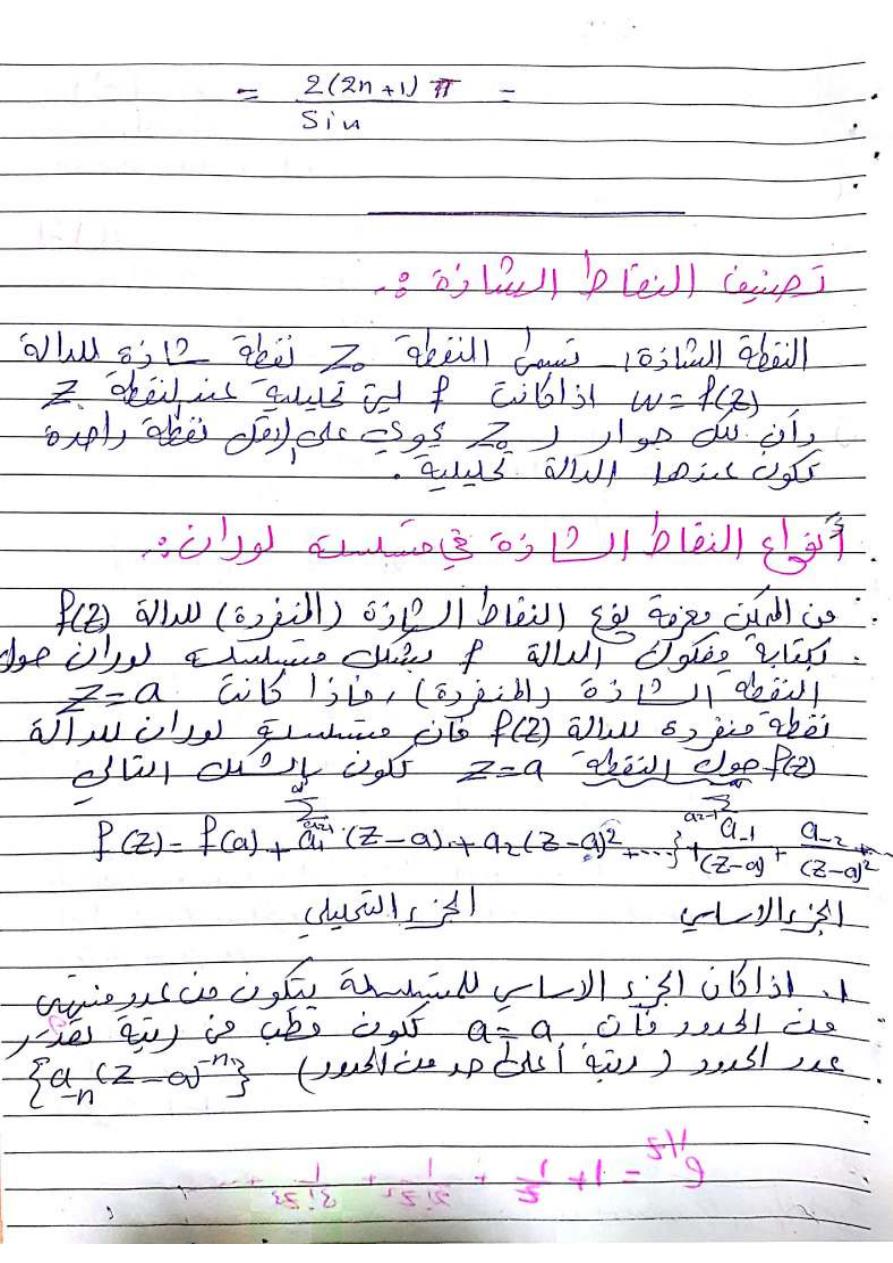 = 2(2n+1)π / Sin =
تصنيف النقاط الشاذة :.
النقطة الشاذة: تسمى النقطة Z₀ نقطة شاذة للدالة
w = f(z) اذا كانت f ليست تحليلية عند النقطة Z₀
وأن لكل جوار لـ Z₀ يحوي على الاقل نقطة واحدة
تكون عندها الدالة تحليلية .
أنواع النقاط الشاذة في متسلسلة لوران :.
من الممكن معرفة نوع النقاط الشاذة (المنفردة) للدالة f(z)
بكتابة مفكوك الدالة f بشكل متسلسلة لوران حول
النقطة الشاذة (المنفردة) ، فاذا كانت z = a
نقطة منفردة للدالة f(z) فأن متسلسلة لوران للدالة
f(z) حول النقطة z = a تكون بالشكل التالي
f(z) = f(a) + a₁(z-a) + a₂(z-a)² + ....} + a₋₁/(z-a) + a₋₂/(z-a)² + ...
الجزء التحليلي الجزء الاساسي
1. اذا كان الجزء الاساسي للمتسلسلة يتكون من عدد منتهي
من الحدود فأن a = a تكون قطب من رتبة بقدر
عدد الحدود (رتبة أعلى حد من الحدود) {a₋ₙ(z-a)⁻ⁿ}
e^{1/z} = 1 + 1/z + 1/2!z² + 1/3!z³ + ....